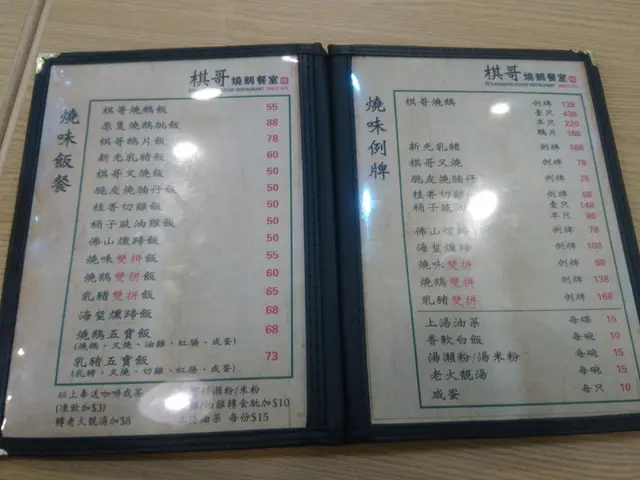 棋哥 燒鵝餐室
燒味飯餐
棋哥燒鵝飯 55
原隻燒鵝髀飯 88
棋哥鵝片飯 78
新光乳豬飯 60
棋哥叉燒飯 50
脆皮燒腩仔飯 50
桂香切雞飯 50
桶子豉油雞飯 50
佛山燻蹄飯 50
燒味雙拼飯 55
燒鵝雙拼飯 60
乳豬雙拼飯 65
海蜇燻蹄飯 68
燒鵝五寶飯 68
(燒鵝、叉燒、油雞、紅腸、咸蛋)
乳豬五寶飯 73
(乳豬、叉燒、切雞、紅腸、咸蛋)
以上奉送咖啡或茶
(凍飲加$3)
轉老火靚湯加$8
瀨粉/米粉
油雞轉食髀加$10
油菜 每份$15
棋哥 燒鵝餐室
燒味例牌
棋哥燒鵝 例牌 138
壹隻 438
半隻 220
鵝片 168
新光乳豬 例牌 168
棋哥叉燒 例牌 78
脆皮燒腩仔 例牌 78
桂香切雞 例牌 68
桶子豉油 壹只 148
半只 80
佛山燻蹄 例牌 78
海蜇燻蹄 例牌 108
燒味雙拼 例牌 88
燒鵝雙拼 例牌 138
乳豬雙拼 例牌 168
上湯油菜 每碟 15
香軟白飯 每碗 10
湯瀨粉/湯米粉 每碗 15
老火靚湯 每碗 15
咸蛋 每只 10